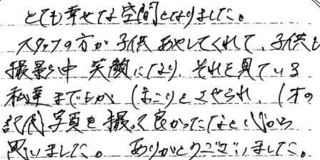 とても幸せな空間となりました。
スタッフの方が子供あやしてくれて、子供も
撮影中笑顔になり、それを見ている
私達までもが、ほっこりとさせられ、1才の
記念写真を撮って良かったなと心から
思いました。ありがとうございました。